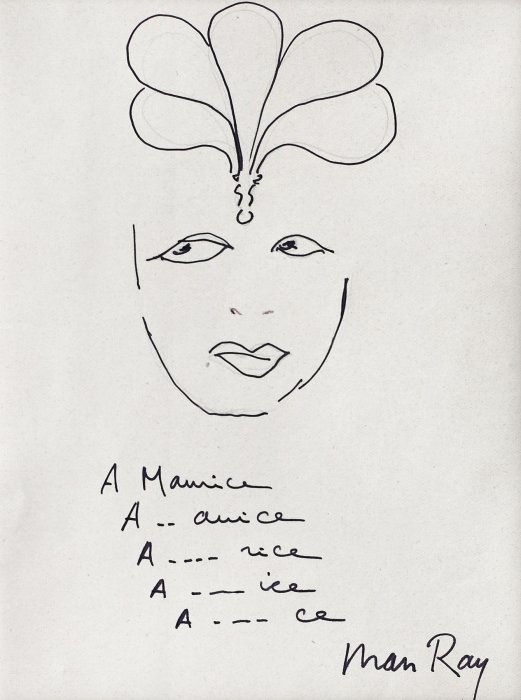 A Maurice
A -- auice
A ---- rice
A ---- ice
A ---- ce
Man Ray